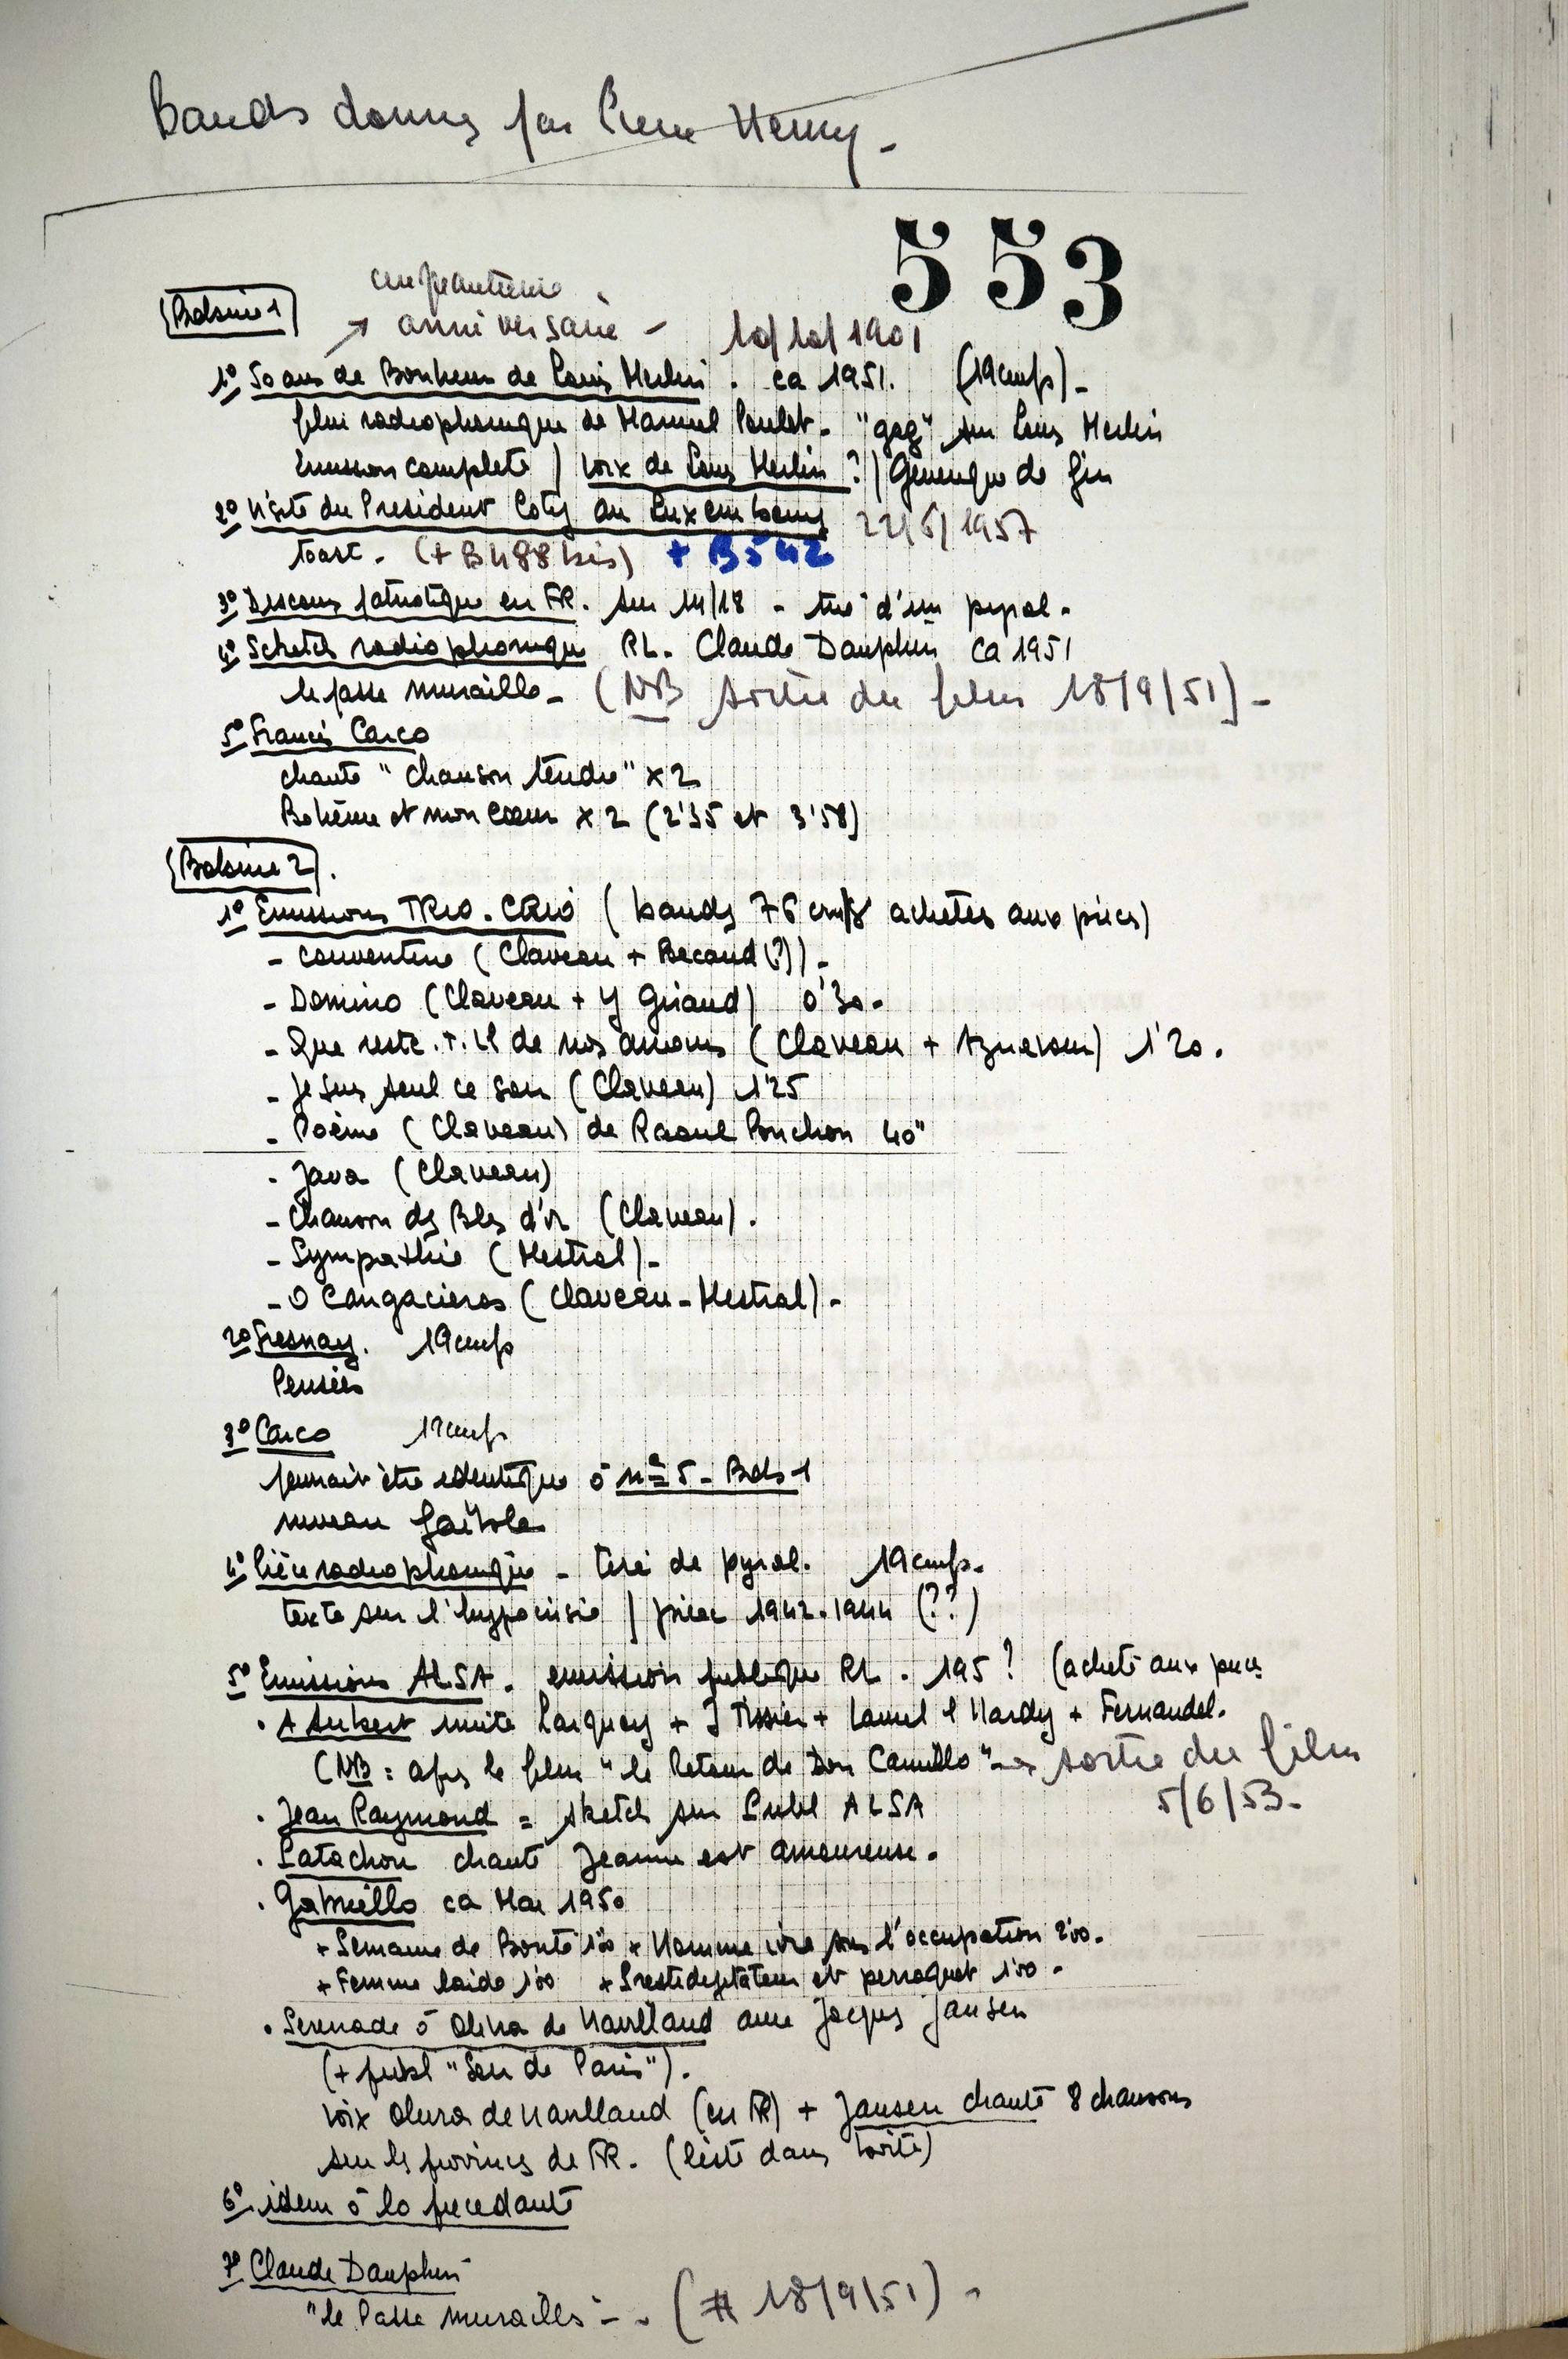 Bandes données par Pierre Henry -
553
Bobine 1
cinquantième
→ anniversaire - 10/10/1901
1° 50 ans de Bonheur de Louis Merlin . ca 1951. (19cm/s) -
film radiophonique de Manuel Poulet - "gag" sur Louis Merlin
Emission complète / voix de Louis Merlin ? / Générique de fin
2° Visite du President Coty au Luxembourg 22/6/1957
toast - (+ B488 bis) + B542
3° Discours patriotique en FR. sur 14/18 - tiré d'un pyral -
4° Schetch radiophonique RL. Claude Dauphin ca 1951
le passe muraille - (NB sortie du film 18/9/51) -
5° Francis Carco
chante "chanson tendre" x2
Bohème et mon coeur x2 (2'35 et 3'58)
Bobine 2.
1° Emissions TRIO. CRIO (bandes 76 cm/s achetées aux puces)
- conventine (Claveau + Becaud (?)) -
- Domino (Claveau + Y Giraud) 0'30 -
- Que reste.T.Il de nos amours (Claveau + Aznavour) 1'20.
- Je suis seul ce soir (Claveau) 1'25
- Poème (Claveau) de Raoul Ponchon 40"
- Java (Claveau)
- Chanson des Blés d'or (Claveau).
- Sympathie (Mestral) -
- O Cangacieros (Claveau - Mestral) -
2° Fresnay. 19cm/s
Pensées
3° Carco 19cm/s
pourrait être identique à n° 5 - Bob 1
niveau faible
4° Pièce radiophonique - tiré de pyral. 19cm/s.
texte sur l'hypocrisie / pièce 1942.1944 (??)
5° Emissions ALSA. emission publique RL. 195? (acheté aux puces
. A Aubert imite Larquey + J Tissier + Laurel & Hardy + Fernandel.
(NB : après le film "le Retour de Don Camillo" → sortie du film
5/6/53 -
. Jean Raymond = sketch sur Publ ALSA
. Patachou chante Jeanne est amoureuse.
. Gabriello ca Mai 1950
+ Semaine de Bonté 1'00 + Homme ivre sous l'occupation 2'00.
+ Femme laide 1'00 + Prestidigitateur et perroquet 1'00 -
. Serenade à Olivia de Havilland avec Jacques Jansen
(+ publ "Soir de Paris").
voix Olivia de Havilland (en FR) + Jansen chante 8 chansons
sur les provinces de FR. (liste dans boite)
6° idem à la precedante
7° Claude Dauphin
"le Passe muraille" - . (# 18/9/51) -